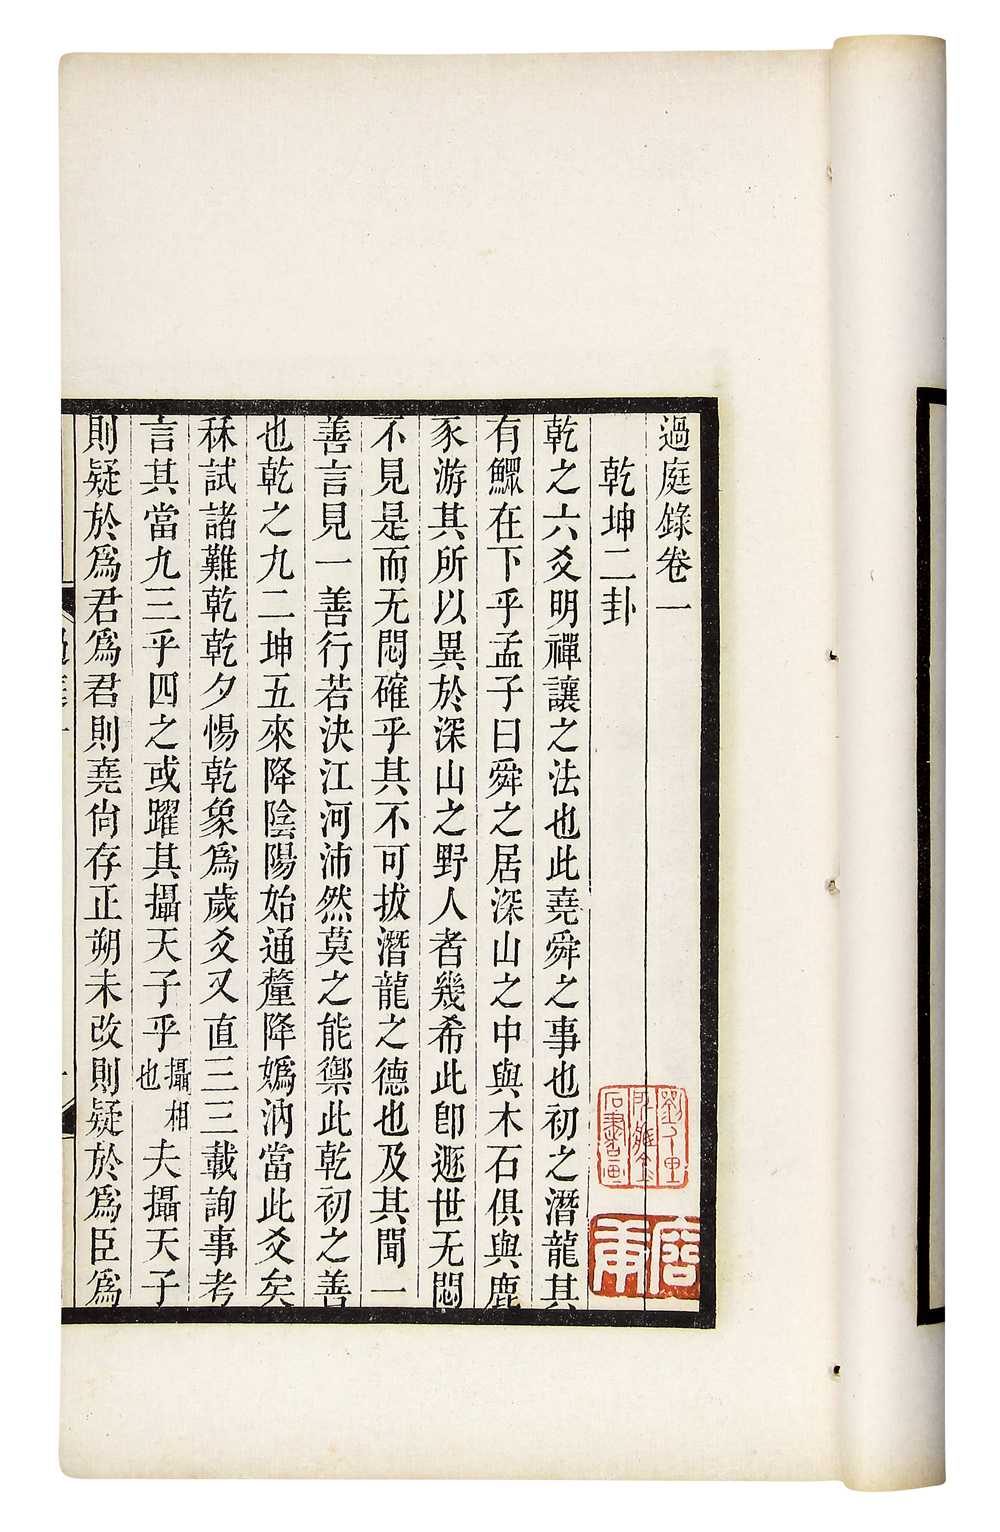 過庭錄卷一
乾坤二卦
乾之六爻明禪讓之法也此堯舜之事也初之潛龍其
有鰥在下乎孟子曰舜之居深山之中與木石俱與鹿
豕游其所以異於深山之野人者幾希此卽遯世无悶
不見是而无悶確乎其不可拔潛龍之德也及其聞一
善言見一善行若決江河沛然莫之能禦此乾初之善
也乾之九二坤五來降陰陽始通釐降嬀汭當此爻矣
秝試諸難乾乾夕惕乾象爲歲爻又直三三載詢事考
言其當九三乎四之或躍其攝天子乎攝相也夫攝天子
則疑於爲君爲君則堯尙存正朔未改則疑於爲臣爲